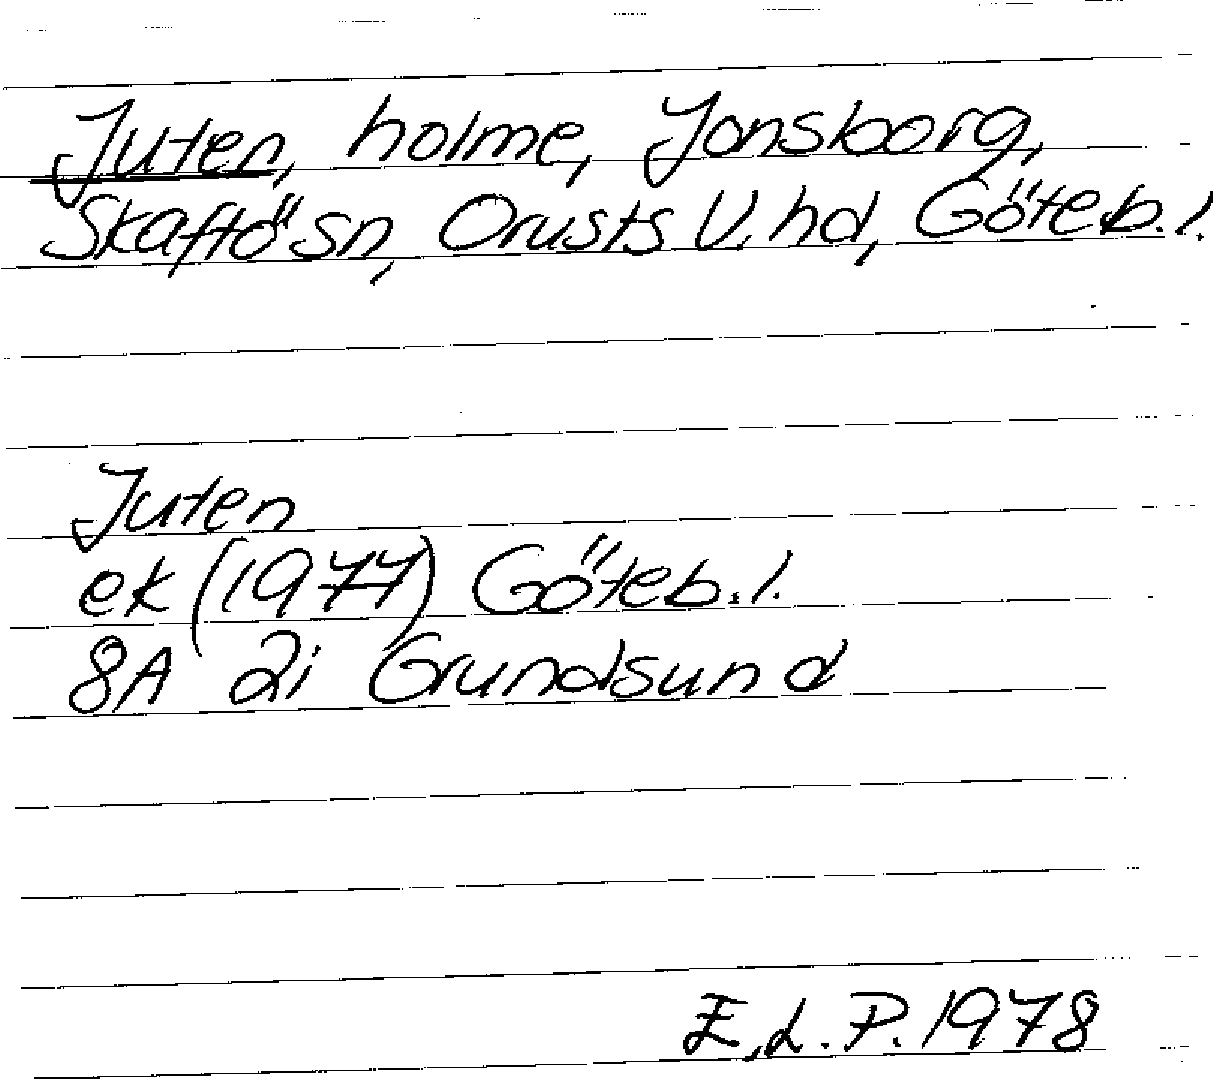 Juten, holme, Jonsborg,
Skaftö sn, Orusts V. hd, Göteb. l.
Juten
ek (1977) Göteb. l.
8A 2i Grundsund
E.L.P. 1978